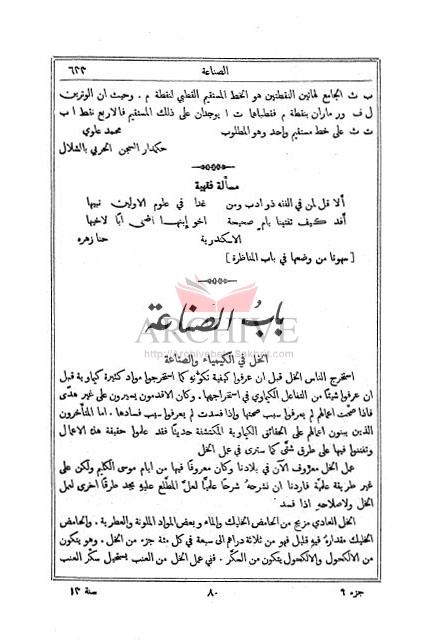 الصناعة
٦٣٣
ب ث الجامع لهاتين النقطتين هو الخط المستقيم القطبي لنقطة م . وحيث ان الوترين
ل ف ور ماران بنقطة م فقطباهما ت ا يوجدان على ذلك المستقيم فالاربع نقط ا ب
ت ث على خط مستقيم واحد وهو المطلوب
محمد علوي
حكمدار السجن الحربي بالشلال
مسألة فقهية
ألا قل لمن في الفقه ذو ادب ومن غدا في علوم الاولين نبيها
أفد كيف تفتينا بام صحيحة اخو إبنها اضحى ابًا لاخيها
الاسكندرية
حنا زهره
[سهونا من وضعها في باب المناظرة]
باب الصناعة
ARCHIVE
الخل في الكيمياء والصناعة
استخرج الناس الخل قبل ان عرفوا كيفية تكوّنه كما استخرجوا مواد كثيرة كياوية قبل
ان عرفوا شيئًا من التفاعل الكياوي في استخراجها. وكان الاقدمون يسيرون على غير هدًى
فاذا صحَّت اعمالهم لم يعرفوا سبب صحتها واذا فسدت لم يعرفوا سبب فسادها. اما المتأخرون
الذين يبنون اعمالهم على الحقائق الكياوية المكتشفة حديثًا فقد علموا حقيقة هذه الاعمال
وتفننوا فيها على طرق شتَّى كما سترى في عمل الخل
عمل الخل معروف الآن في بلادنا وكان معروفًا فيها من ايام موسى الكليم ولكن على
غير طريقة علميَّة فاردنا ان نشرحهُ شرحًا علميًّا لعلَّ المطَّلع عليهِ يجد طرقًا اخرى لعمل
الخل ولاصلاحهِ اذا فسد
الخل العادي مزيج من الحامض الخليك والماء وبعض المواد الملونة والعطرية. والحامض
الخليك مقدارهُ فيهِ قليل فهو من ثلاثة دراهم الى سبعة في كل مئة جزء من الخل. وهو يتكون
من الالكحول والالكحول يتكون من السكّر. ففي عمل الخل من العنب يستحيل سكّر العنب
جزء ٩
٨٠
سنة ١٢